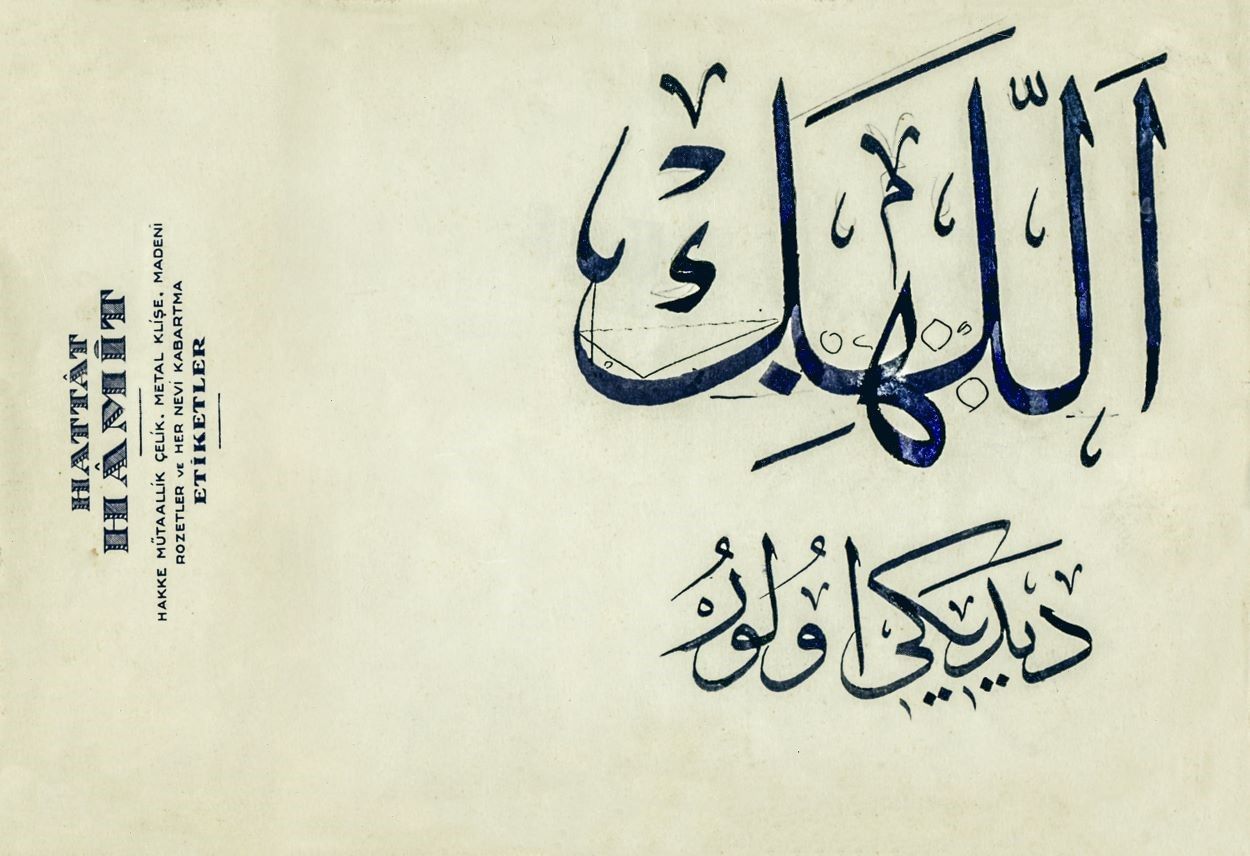 اَللّٰهِڭ
ديديكى اولور
HATTÂT
HÂMİT
HAKKE MÜTAALLİK ÇELİK. METAL KLİŞE. MADENİ
ROZETLER VE HER NEVİ KABARTMA
ETİKETLER